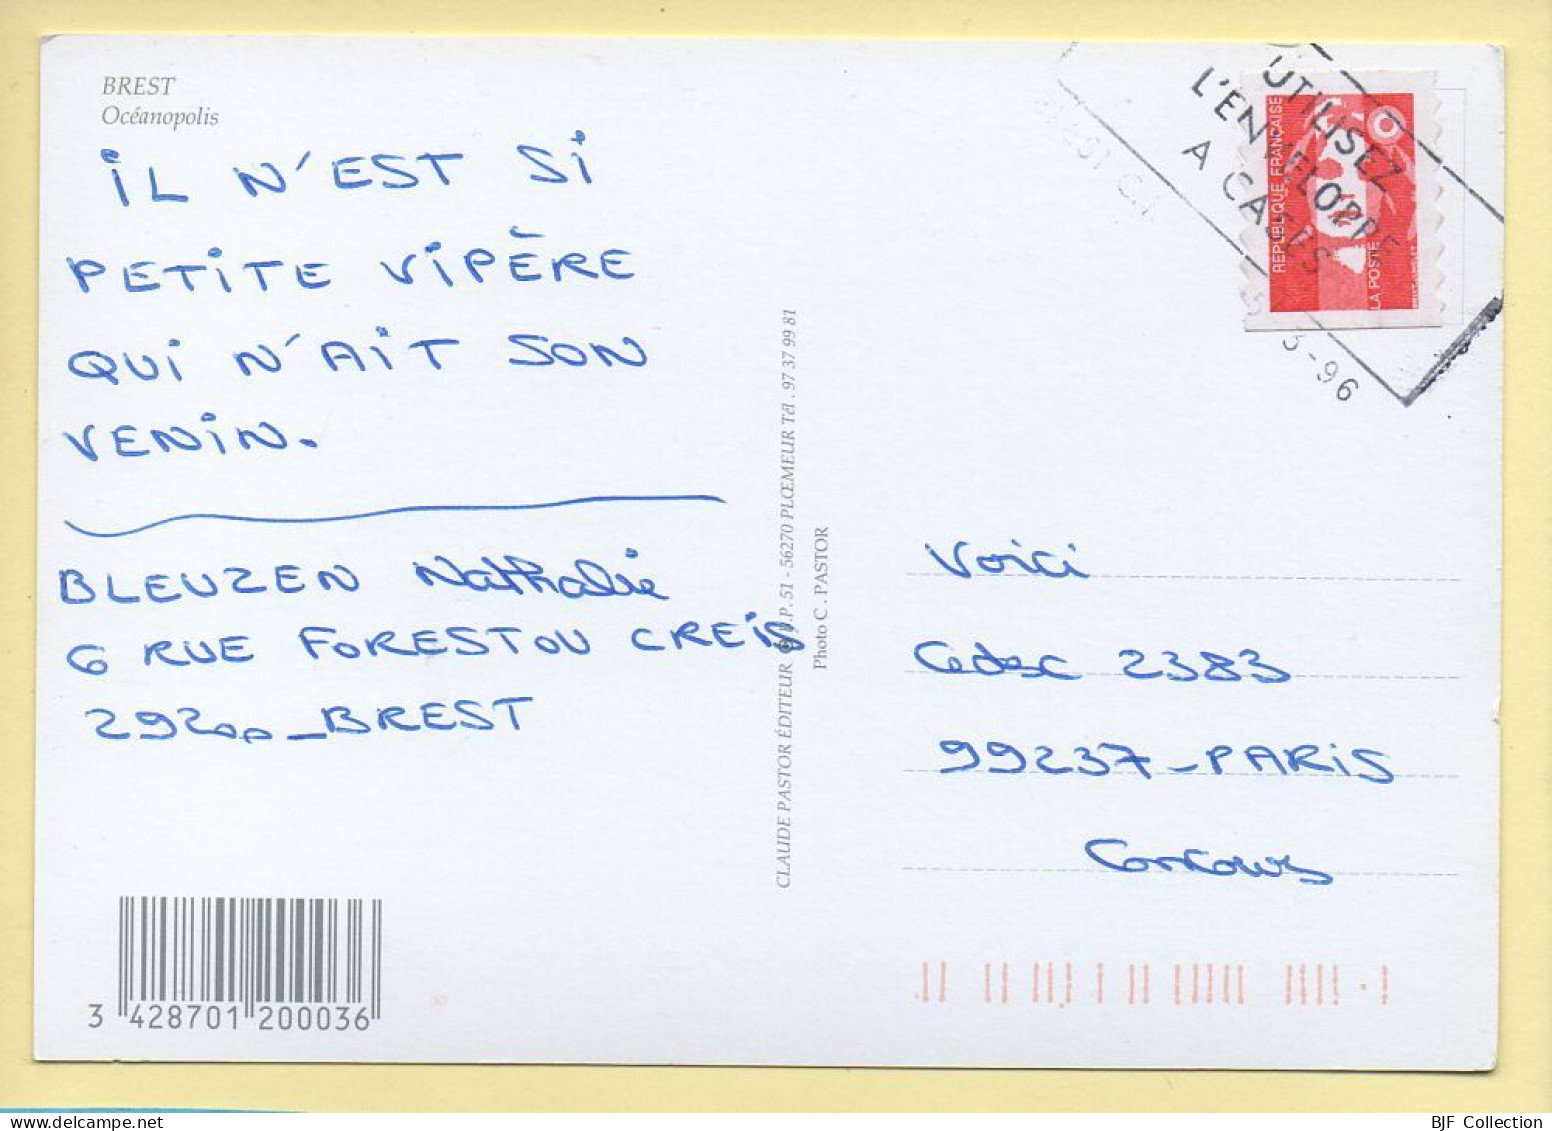 BREST
Océanopolis
IL N'EST SI
PETITE VIPÈRE
QUI N'AIT SON
VENIN.
BLEUZEN Nathalie
6 RUE FORESTOU CREIS
29200_BREST
3 428701 200036
CLAUDE PASTOR ÉDITEUR B.P. 51 - 56270 PLŒMEUR Tél. 97 37 99 81
Photo C. PASTOR
UTILISEZ
L'ENVELOPPE
A CASES
BREST C.T.
3-96
RÉPUBLIQUE FRANÇAISE
LA POSTE
Voici
Cedex 2383
99237-PARIS
Concours
BJF Collection